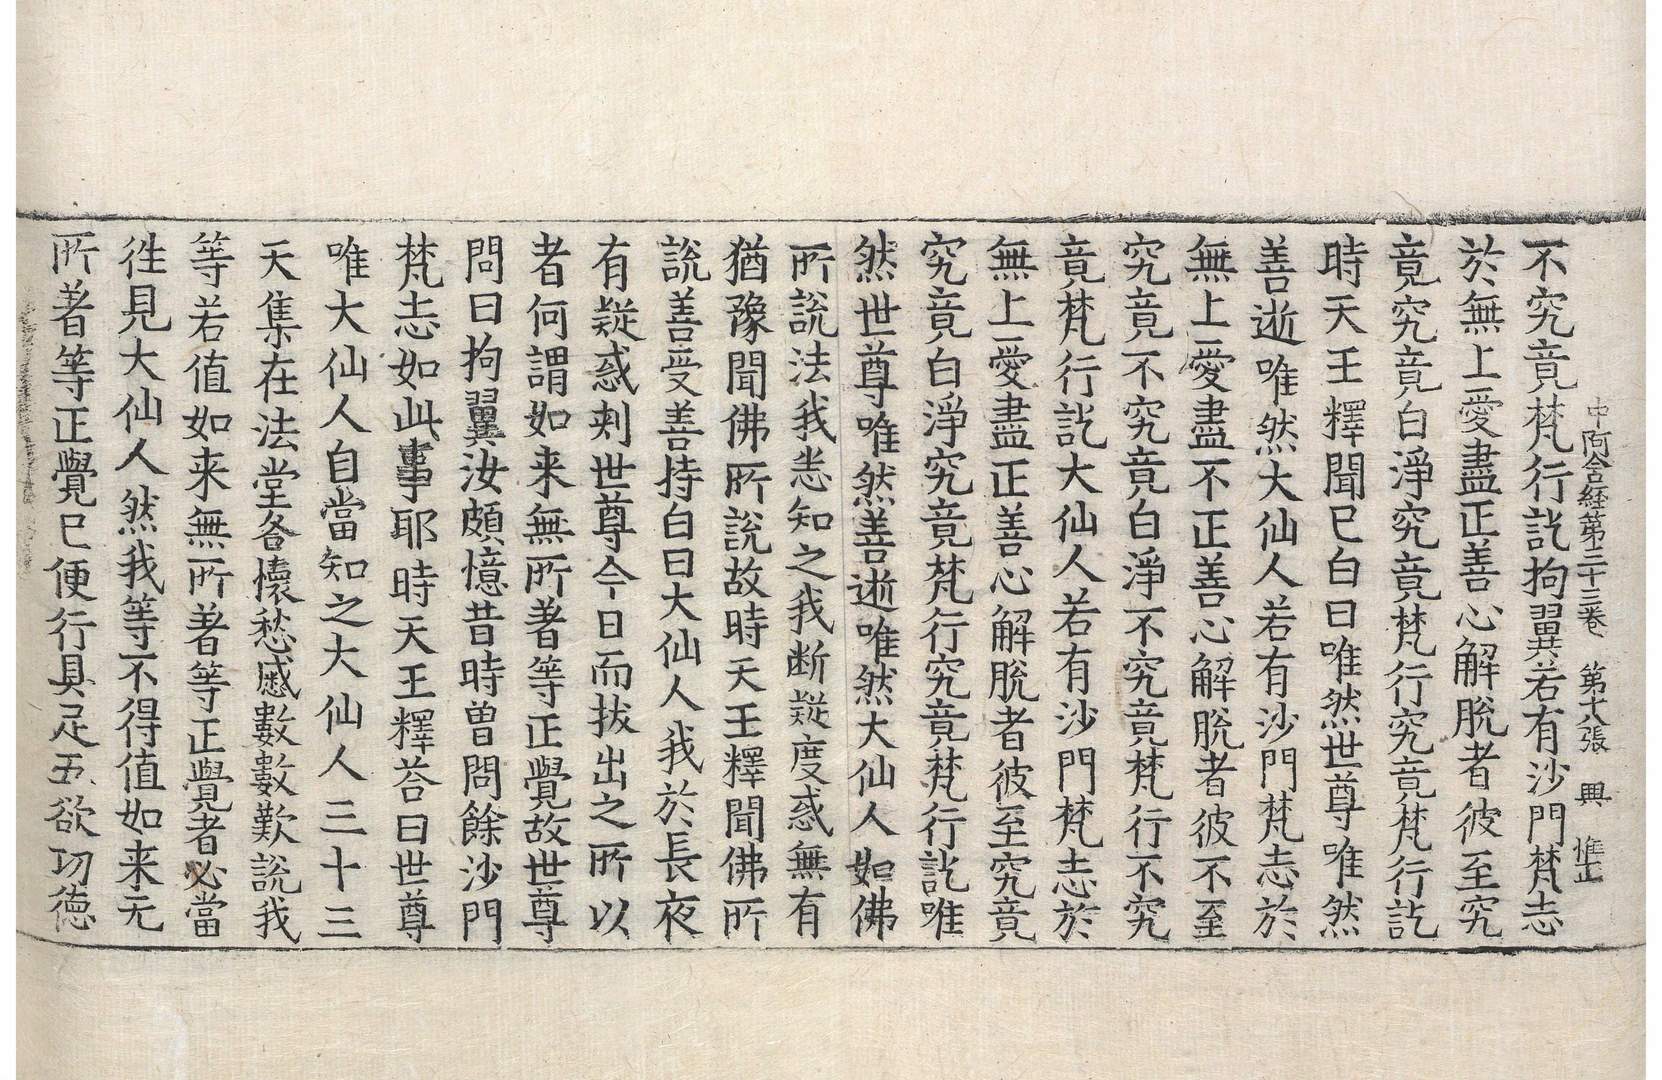 中阿含経第三十三卷　第十八張　興　惟正
不究竟梵行訖拘翼若有沙門梵志
於無上愛盡正善心解脫者彼至究
竟究竟白淨究竟梵行究竟梵行訖
時天王釋聞已白曰唯然世尊唯然
善逝唯然大仙人若有沙門梵志於
無上愛盡不正善心解脫者彼不至
究竟不究竟白淨不究竟梵行不究
竟梵行訖大仙人若有沙門梵志於
無上愛盡正善心解脫者彼至究竟
究竟白淨究竟梵行究竟梵行訖唯
然世尊唯然善逝唯然大仙人如佛
所說法我悉知之我断疑度惑無有
猶豫聞佛所說故時天王釋聞佛所
說善受善持白曰大仙人我於長夜
有疑惑刺世尊今日而拔出之所以
者何謂如来無所著等正覺故世尊
問曰拘翼汝頗憶昔時曽問餘沙門
梵志如此事耶時天王釋荅曰世尊
唯大仙人自當知之大仙人三十三
天集在法堂各懷愁慼數數歎說我
等若值如来無所著等正覺者必當
徃見大仙人然我等不得值如来无
所著等正覺已便行具足五欲功德